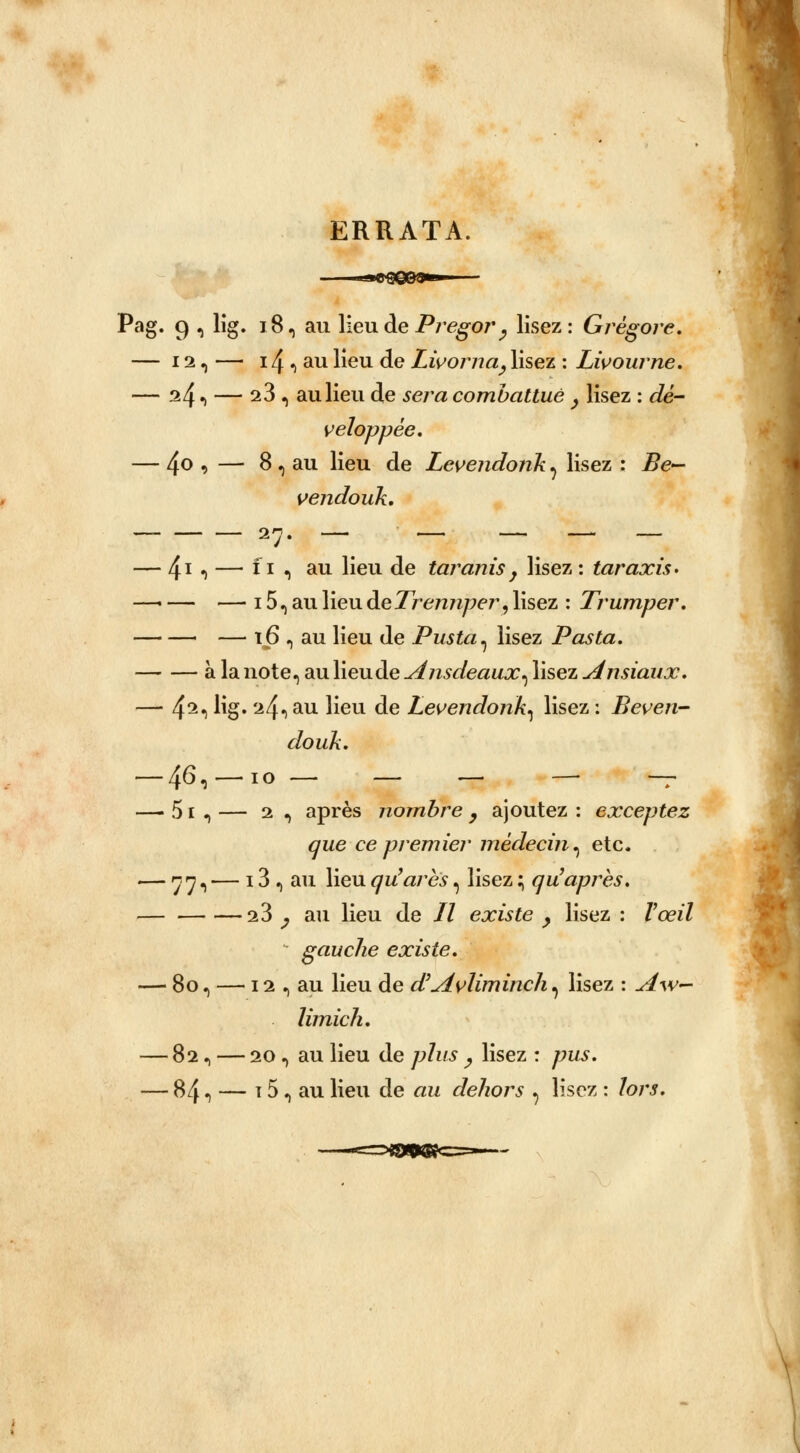 ERRATA.
Pag. 9, lig. 18, au lieu de Pregor, lisez : Grégore.
— 12, — 14, au lieu de Livorna, lisez : Livourne.
— 24, — 23, au lieu de sera combattué, lisez : dé-
veloppée.
— 40, — 8, au lieu de Levendonk, lisez : Be-
vendouk.
— — — 27. — — — — —
— 41, — 11, au lieu de taranis, lisez : taraxis.
— — — 15, au lieu de Trennper, lisez : Trumper.
— — — 16, au lieu de Pusta, lisez Pasta.
— — à la note, au lieu de Ansdeaux, lisez Ansiaux.
— 42, lig. 24, au lieu de Levendonk, lisez : Beven-
douk.
— 46, — 10 — — — — —
— 51, — 2, après nombre, ajoutez : exceptez
que ce premier médecin, etc.
— 77, — 13, au lieu qu'arès, lisez ; qu'après.
— — — 23, au lieu de Il existe, lisez : l'œil
gauche existe.
— 80, — 12, au lieu de d'Avliminch, lisez : Aw-
limich.
— 82, — 20, au lieu de plus, lisez : pus.
— 84, — 15, au lieu de au dehors, lisez : lors.